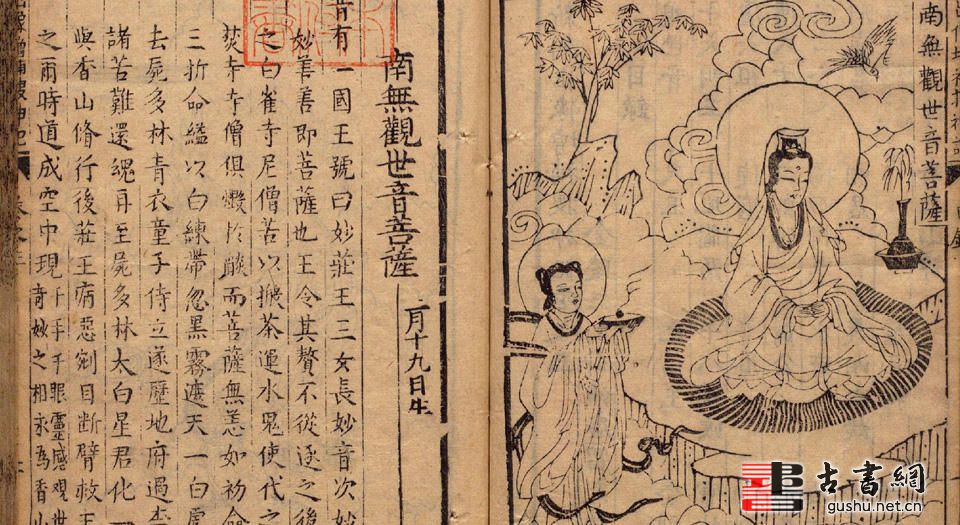 南無觀世音菩薩
南無觀世音菩薩
月十九日生
昔有一國王號曰妙莊王三女長妙音次妙
妙善善即菩薩也王令其贅不從逐之後
之白雀寺尼僧苦以搬茶運水鬼使代之
焚寺寺僧俱燬於燄而菩薩無恙如初命
三折命縊以白練帶忽黑霧遮天一白虎
去屍多林青衣童子侍立遂歷地府過
諸苦難還魂再至屍多林太白星君化一
與香山脩行後莊王病惡剜目斷臂救王
之爾時道成空中現千手千眼靈感觀世
奇妙之相永為香山
古書網
gushu.net.cn